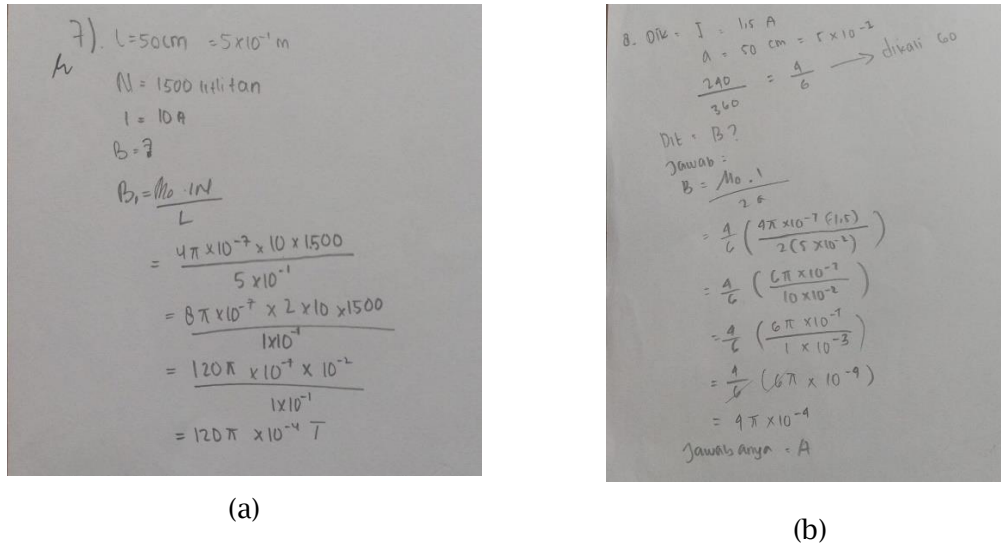 7). l = 50 cm = 5 x 10⁻¹ m
N = 1500 lilitan
I = 10 A
B = ?
B₁ = μ₀ . IN / L
= 4π x 10⁻⁷ x 10 x 1500 / 5 x 10⁻¹
= 8π x 10⁻⁷ x 2 x 10 x 1500 / 1x10⁻¹
= 120π x 10⁻⁷ x 10⁻² / 1x10⁻¹
= 120π x 10⁻⁴ T
(a)
8. Dik = I = 1,5 A
a = 50 cm = 5 x 10⁻²
240 / 360 = 4 / 6 → dikali 60
Dit = B?
Jawab :
B = μ₀ . I / 2a
= 4/6 ( 4π x 10⁻⁷ (1,5) / 2 (5 x 10⁻²) )
= 4/6 ( 6π x 10⁻⁷ / 10 x 10⁻² )
= 4/6 ( 6π x 10⁻⁷ / 1 x 10⁻³ )
= 4/6 (6π x 10⁻⁴)
= 4π x 10⁻⁴
Jawabanya = A
(b)